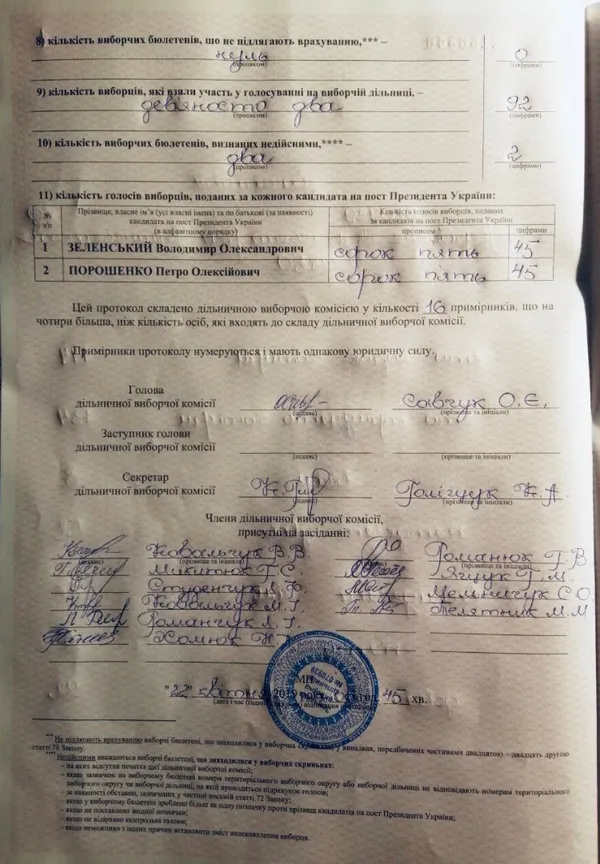 8) кількість виборчих бюлетенів, що не підлягають врахуванню,*** –
нуль 0
(прописом) (цифрами)
9) кількість виборців, які взяли участь у голосуванні на виборчій дільниці, –
девяносто два 92
(прописом) (цифрами)
10) кількість виборчих бюлетенів, визнаних недійсними,**** –
два 2
(прописом) (цифрами)
11) кількість голосів виборців, поданих за кожного кандидата на пост Президента України:
№ з/п
Прізвище, власне ім’я (усі власні імена) та по батькові (за наявності)
кандидата на пост Президента України
(в алфавітному порядку)
Кількість голосів виборців, поданих
за кандидата на пост Президента України
прописом цифрами
1 ЗЕЛЕНСЬКИЙ Володимир Олександрович сорок пять 45
2 ПОРОШЕНКО Петро Олексійович сорок пять 45
Цей протокол складено дільничною виборчою комісією у кількості 16 примірників, що на
чотири більша, ніж кількість осіб, які входять до складу дільничної виборчої комісії.
Примірники протоколу нумеруються і мають однакову юридичну силу.
Голова
дільничної виборчої комісії Савчук О.Є.
(підпис) (прізвище та ініціали)
Заступник голови
дільничної виборчої комісії
(підпис) (прізвище та ініціали)
Секретар
дільничної виборчої комісії Голіguук Н.А.
(підпис) (прізвище та ініціали)
Члени дільничної виборчої комісії,
присутні на засіданні:
Ковальчук В.В Романюк Г.В
Микитюк Г.С. Ящук Г.М.
Ступенчук Л.Ф. Мельничук С.О.
Ковальчук М.І. Телятник М.М
Романчук Л.Г.
Хомюк Н.
МП
"22" квітня 2019 року год. 45 хв.
*** Не підлягають врахуванню виборчі бюлетені, що знаходилися у виборчих скриньках у випадках, передбачених частинами двадцятою – двадцять другою
статті 78 Закону.
**** Недійсними вважаються виборчі бюлетені, що знаходилися у виборчих скриньках:
– на яких відсутня печатка цієї дільничної виборчої комісії;
– якщо зазначені на виборчому бюлетені номери територіального виборчого округу або виборчої дільниці не відповідають номерам територіального
виборчого округу чи виборчої дільниці, на якій проводиться підрахунок голосів;
– за наявності обставин, зазначених у частині восьмій статті 72 Закону;
– якщо у виборчому бюлетені зроблено більш як одну позначку проти прізвищ кандидатів на пост Президента України;
– якщо не поставлено жодної позначки;
– якщо не відірвано контрольні талони;
– якщо неможливо з інших причин встановити зміст волевиявлення виборця.